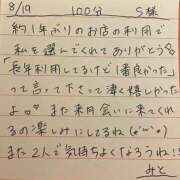 8/19 100分 S様
約1年ぶりのお店の利用で
私を選んでくれてありがとう
「長年利用してるけど1番良かった」
って言って下さって凄く嬉しかった
よ。また来月会いに来てくれ
るの楽しみにしてるね(๑'ᵕ'๑)
また2人で気持ちよくなろうね!!
みと